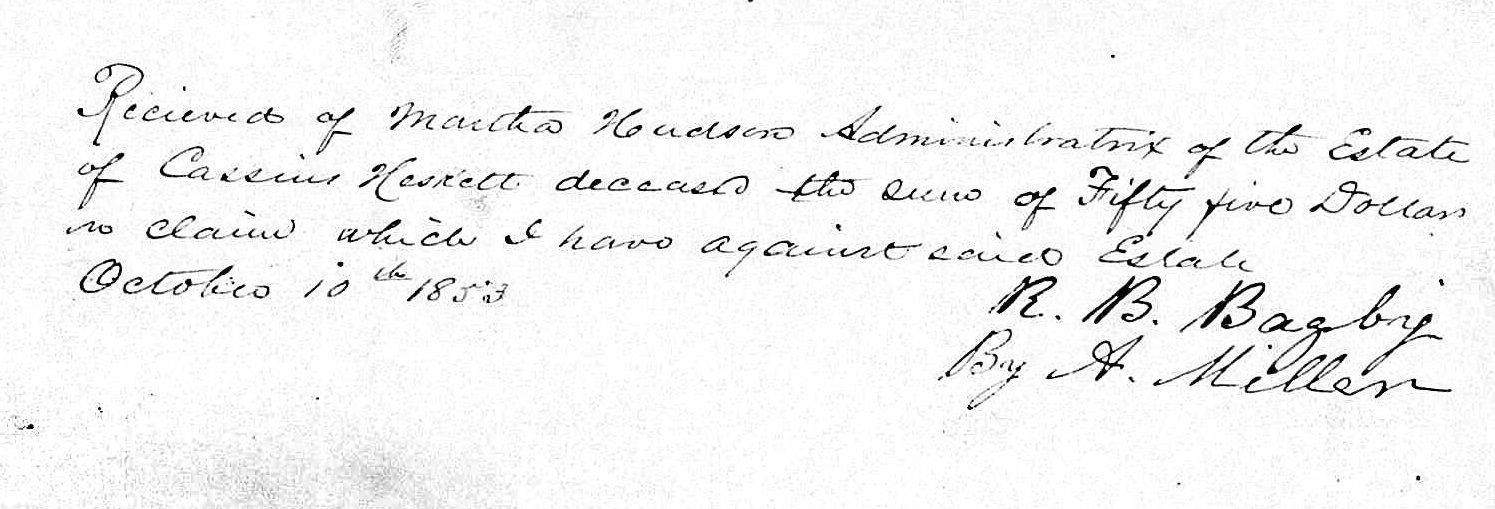 Recieved of Martha Hudson Administratrix of the Estate
of Cassius Heskett deceased the sum of Fifty five Dollars
on claim which I have against said Estate
October 10th 1853
R. B. Bagby
By A. Miller